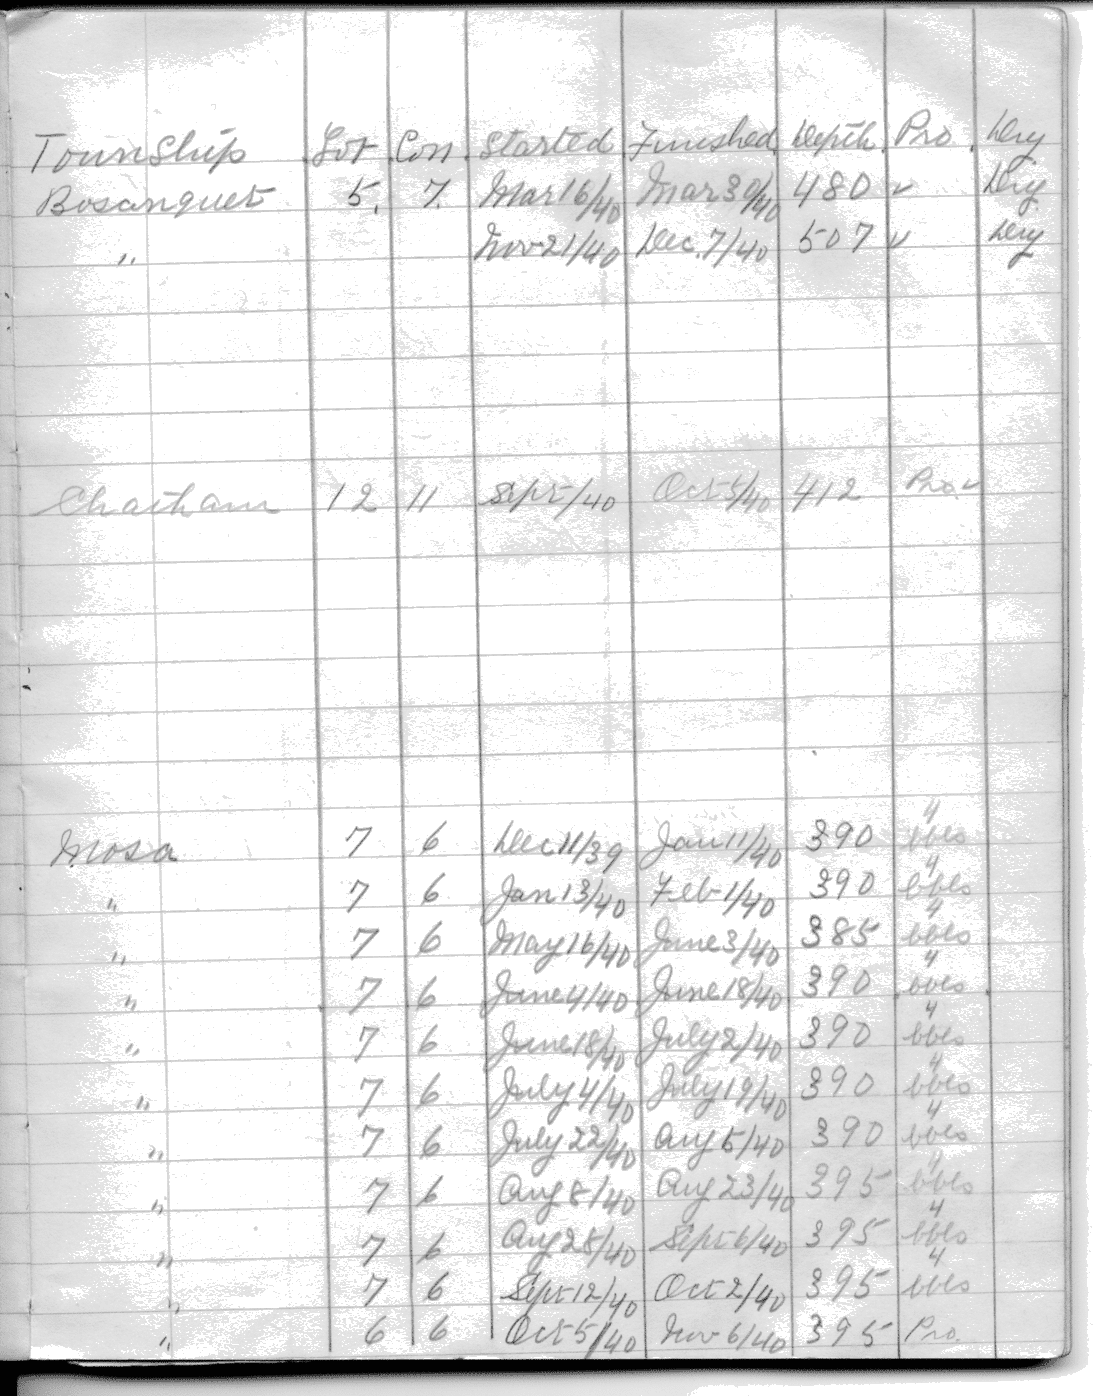 Township Lot Con Started Finished Depth Pro. Dry
Bosanquet 5. 7. Mar 16/40 Mar 30/40 480 ✓ Dry
" Nov 21/40 Dec. 7/40 507 ✓ Dry
Chatham 12 11 Sept/40 Oct 5/40 412 Pro. ✓
Mosa 7 6 Dec 11/39 Jan 11/40 390 4 bbls
" 7 6 Jan 13/40 Feb 1/40 390 4 bbls
" 7 6 May 16/40 June 3/40 385 4 bbls
" 7 6 June 4/40 June 18/40 390 4 bbls
" 7 6 June 18/40 July 2/40 390 4 bbls
" 7 6 July 4/40 July 19/40 390 4 bbls
" 7 6 July 22/40 Aug 5/40 390 4 bbls
" 7 6 Aug 8/40 Aug 23/40 395 4 bbls
" 7 6 Aug 28/40 Sept 6/40 395 4 bbls
" 7 6 Sept 12/40 Oct 2/40 395 4 bbls
" 6 6 Oct 5/40 Nov 6/40 395 Pro.